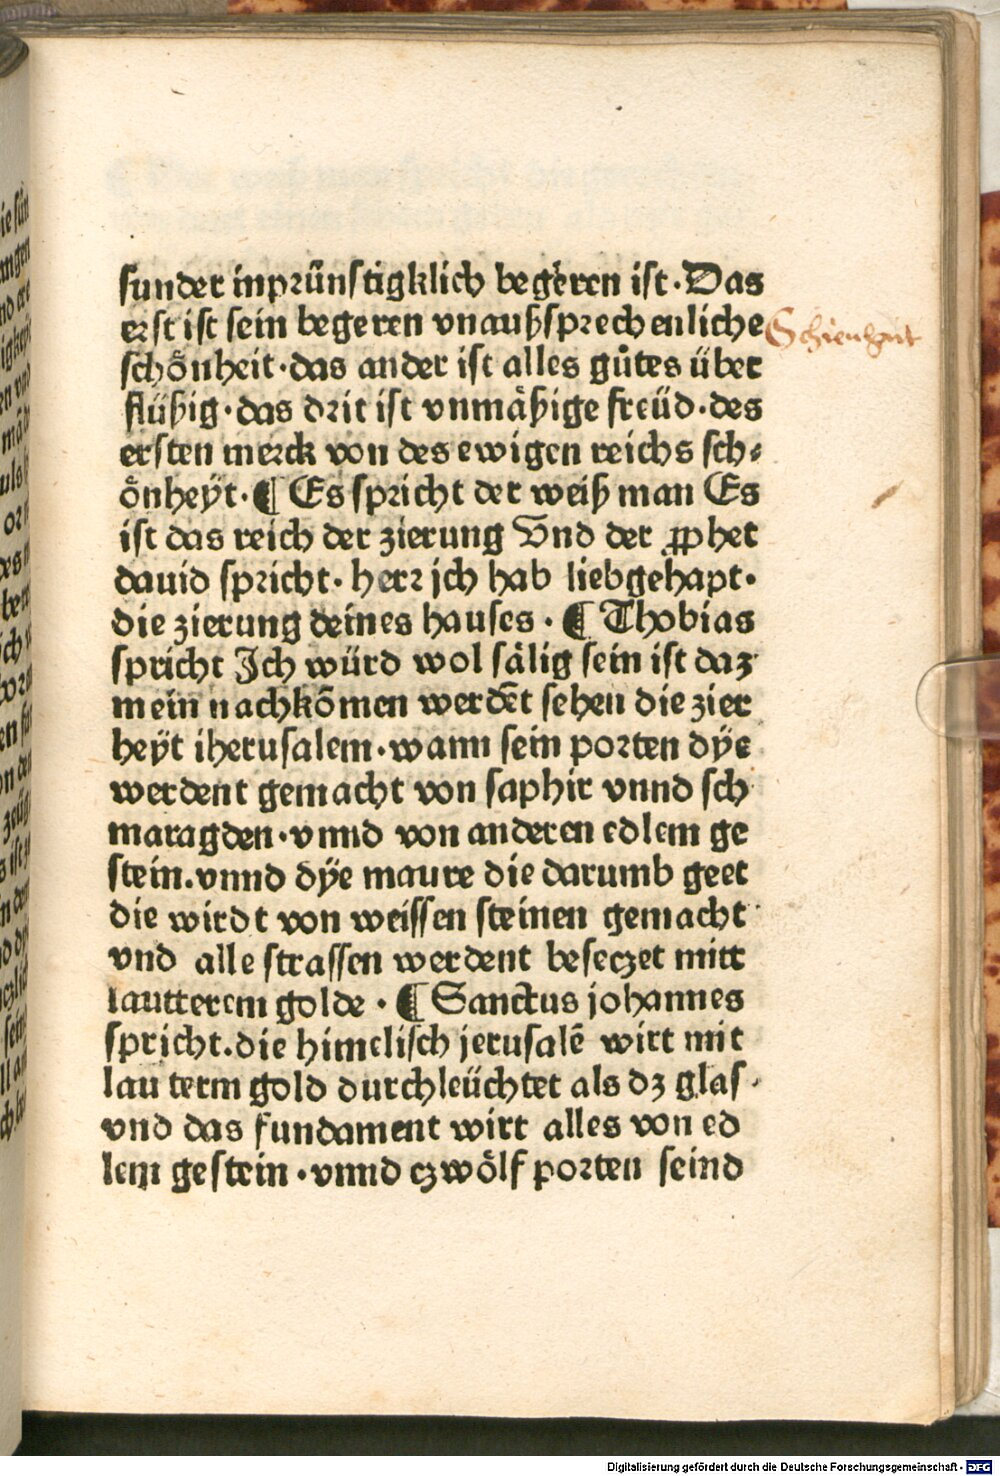 sunder inprünstigklich begeren ist·Das
erst ist sein begeren vnaußsprechenliche
schönheit·das ander ist alles gůtes über
flüßig·das drit ist vnmäßige freüd·des
ersten merck von des ewigen reichs sch⸗
önheÿt·¶ Es spricht der weiß man Es
ist das reich der zierung Vnd der ꝓphet
dauid spricht· herr jch hab liebgehapt·
die zierung deines hauses·¶ Thobias
spricht Jch würd wol sälig sein ist daz
mein nachkõmen werdẽt sehen die zier
heÿt iherusalem·wann sein porten dÿe
werdent gemacht von saphir vnnd sch
maragden·vnnd von anderen edlem ge
stein.vnnd dÿe maure die darumb geet
die wirdt von weissen steinen gemacht
vnd alle strassen werdent beseczet mitt
lautterem golde·¶ Sanctus johannes
spricht.die himelisch jerusalẽ wirt mit
lauterm gold durchleüchtet als dz glas·
vnd das fundament wirt alles von ed
lem gestein·vnnd czwölf porten seind
Digitalisierung gefördert durch die Deutsche Forschungsgemeinschaft - DFG